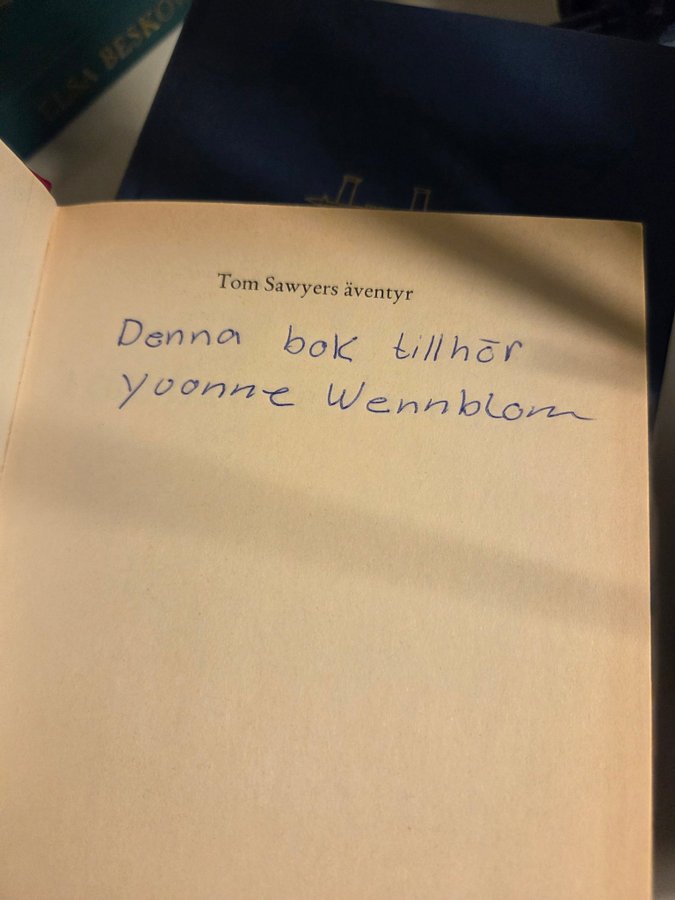 ELSA BESKOW
Tom Sawyers äventyr
Denna bok tillhör
Yvonne Wennblom